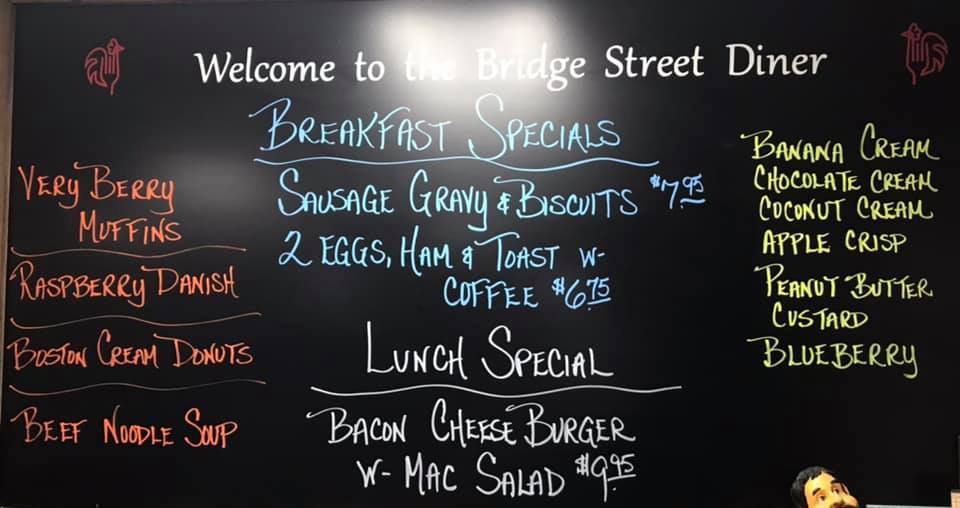 Welcome to the Bridge Street Diner
BREAKFAST SPECIALS
SAUSAGE GRAVY & BISCUITS $7.95
2 EGGS, HAM & TOAST W-
COFFEE $6.75
LUNCH SPECIAL
BACON CHEESE BURGER
W- MAC SALAD $9.95
VERY BERRY
MUFFINS
RASPBERRY DANISH
BOSTON CREAM DONUTS
BEEF NOODLE SOUP
BANANA CREAM
CHOCOLATE CREAM
COCONUT CREAM
APPLE CRISP
PEANUT BUTTER
CUSTARD
BLUEBERRY